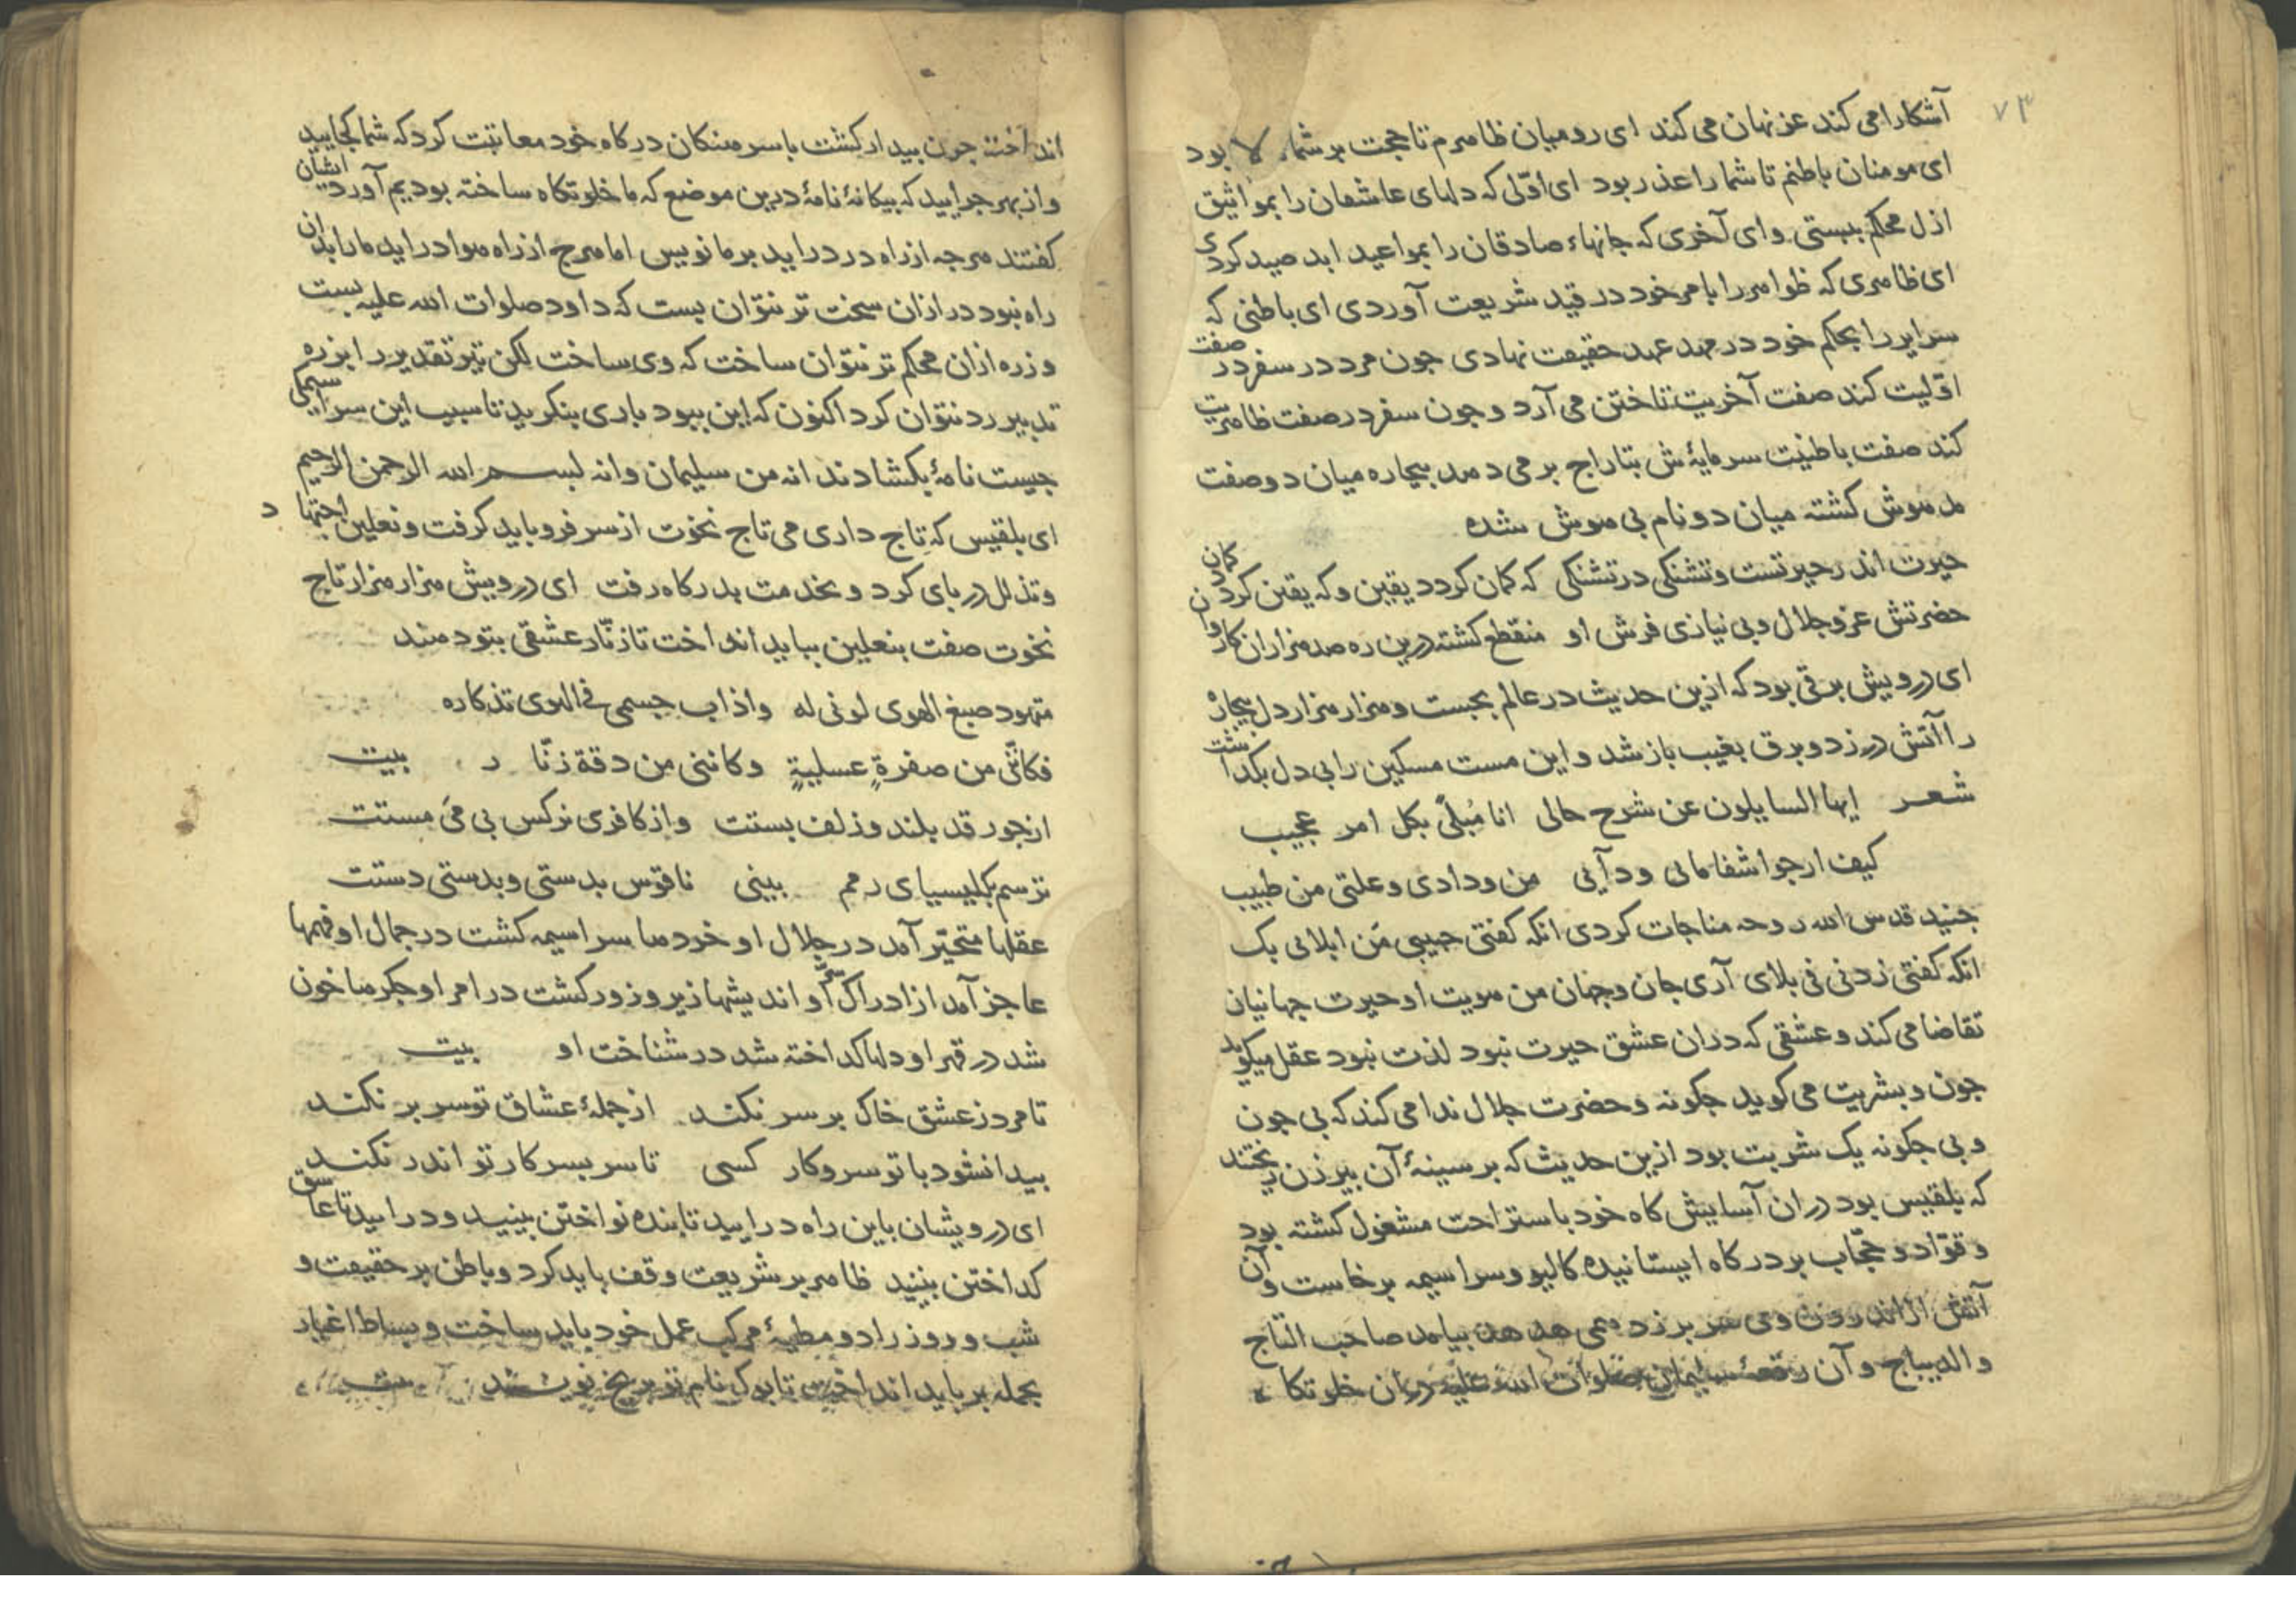 ۷۳
آشکارا می کند عز نهان می کند ای رومیان ظاهرم تا حجت بر شما لا بود
ای مومنان باطنم تا شما را عذر بود ای اوّلی که دلهای عاشقان را بمواثیق
ازل محکم ببستی و ای آخری که جانهاء صادقان را بمواعید ابد صید کردی
ای ظاهری که ظواهر را بامر خود در قید شریعت آوردی ای باطنی که
سرایر را بحکم خود در مهد عهد حقیقت نهادی جون مرد در سفر در صفت
اوّلیت کند صفت آخریت تاختن می آرد و جون سفر در صفت ظاهریت
کند صفت باطنیت سرمایهٔ ش بتاراج بر می دهد بیجاره میان دو صفت
مدهوش کشته میان دو نام بی هوش شده
حیرت اندر حیرتست و تشنکی در تشنکی که کمان کردد یقین و که یقین کردد کمان
حضرتش عز و جلال و بی نیازی فرش او منقطع کشته درین ره صد هزاران کاروان
ای درویش برقی بود که ازین حدیث در عالم بجست و هزار هزار دل بیجاره
را آتش در زد و برق بغیب باز شد و این مست مسکین را بی دل بکذاشت
شعر ایها السایلون عن شرح حالی انا مُبلًی بکل امر عجیب
کیف ارجوا شفا مالی ودآیی من ودادی و علتی من طبیب
جنید قدس الله روحه مناجات کردی انکه کفتی حبیبی مَن ابلانی بک
انکه کفتی زدنی فی بلای آری جان و جهان من هویت او حیرت جهانیان
تقاضا می کند و عشقی که در ان عشق حیرت نبود لذت نبود عقل میکوید
جون و بشریت می کوید جکونه و حضرت جلال ندا می کند که بی جون
و بی جکونه یک شربت بود ازین حدیث که بر سینهٔ آن بیرزن ریختند
که بلقیس بود در ان آسایش کاه خود باستراحت مشغول کشته بود
و قوّاد و حجّاب بر درکاه ایستانیده کالیو و سراسیمه برخاست و آن
آتش از اندرون وی سر بر زد همی هد هد بیامد صاحب التاج
و الدیباج و آن رقعهٔ سلیمان صلوات الله علیه در ان خلوتکاه
انداخته جون بیدار کشت با سرهنکان درکاه خود معاتبت کرد که شما کجایید
و از بهر جرایید که بیکانهٔ نامهٔ درین موضع که ما خلوتکاه ساخته بودیم آورد ایشان
کفتند هرجه از راه در دراید بر ما نویس اما هرج از راه هوا دراید ما را بدان
راه نبود در ازان سخت تر نتوان بست که داود صلوات الله علیه بست
و زره ازان محکم تر نتوان ساخت که وی ساخت لکن تیر تقدیر را بزره
تدبیر رد نتوان کرد اکنون که این ببود باری بنکرید تا سبب این سراسیمکی
جیست نامهٔ بکشادند انه من سلیمان و انه بسم الله الرحمن الرحیم
ای بلقیس که تاج داری می تاج نخوت از سر فرو باید کرفت و نعلین اجتهاد
و تذلل در بای کرد و بخدمت بدرکاه رفت ای درویش هزار هزار تاج
نخوت صفت بنعلین بباید انداخت تا زنّار عشقی بتو دهند
متهود صبغ الهوی لونی له و اذاب جسمی فی الهوی تذکاره
فکانّی من صفرةٍ عسلیةٍ و کاننی من دقة زنّار بیت
از جور قد بلند و زلف بستت و از کافری نرکس بی می مستت
ترسم بکلیسیای رهم بینی ناقوس بدستی و بدستی دستت
عقلها متحیّر آمد در جلال او خردها سراسیمه کشت در جمال او فهمها
عاجز آمد از ادراک سّر او اندیشها زیر و زور کشت در امر او جکرها خون
شد در قهر او دلها کداخته شد در شناخت او بیت
تا مرد ز عشق خاک بر سر نکند از جملهٔ عشاق تو سر بر نکند
بیدا نشود با تو سر و کار کسی تا سر بسر کار تو اندر نکند
ای درویشان باین راه درایید تا بنده نواختن بینید و درایید تا عاشق
کداختن بینید ظاهر بر شریعت وقف باید کرد و باطن بر حقیقت و
شب و روز را دو مطیهٔ مرکب عمل خود باید ساخت و بساط اغیار
بجمله بر باید انداخت تا بوک نام تو بر یخ نویسند بیت